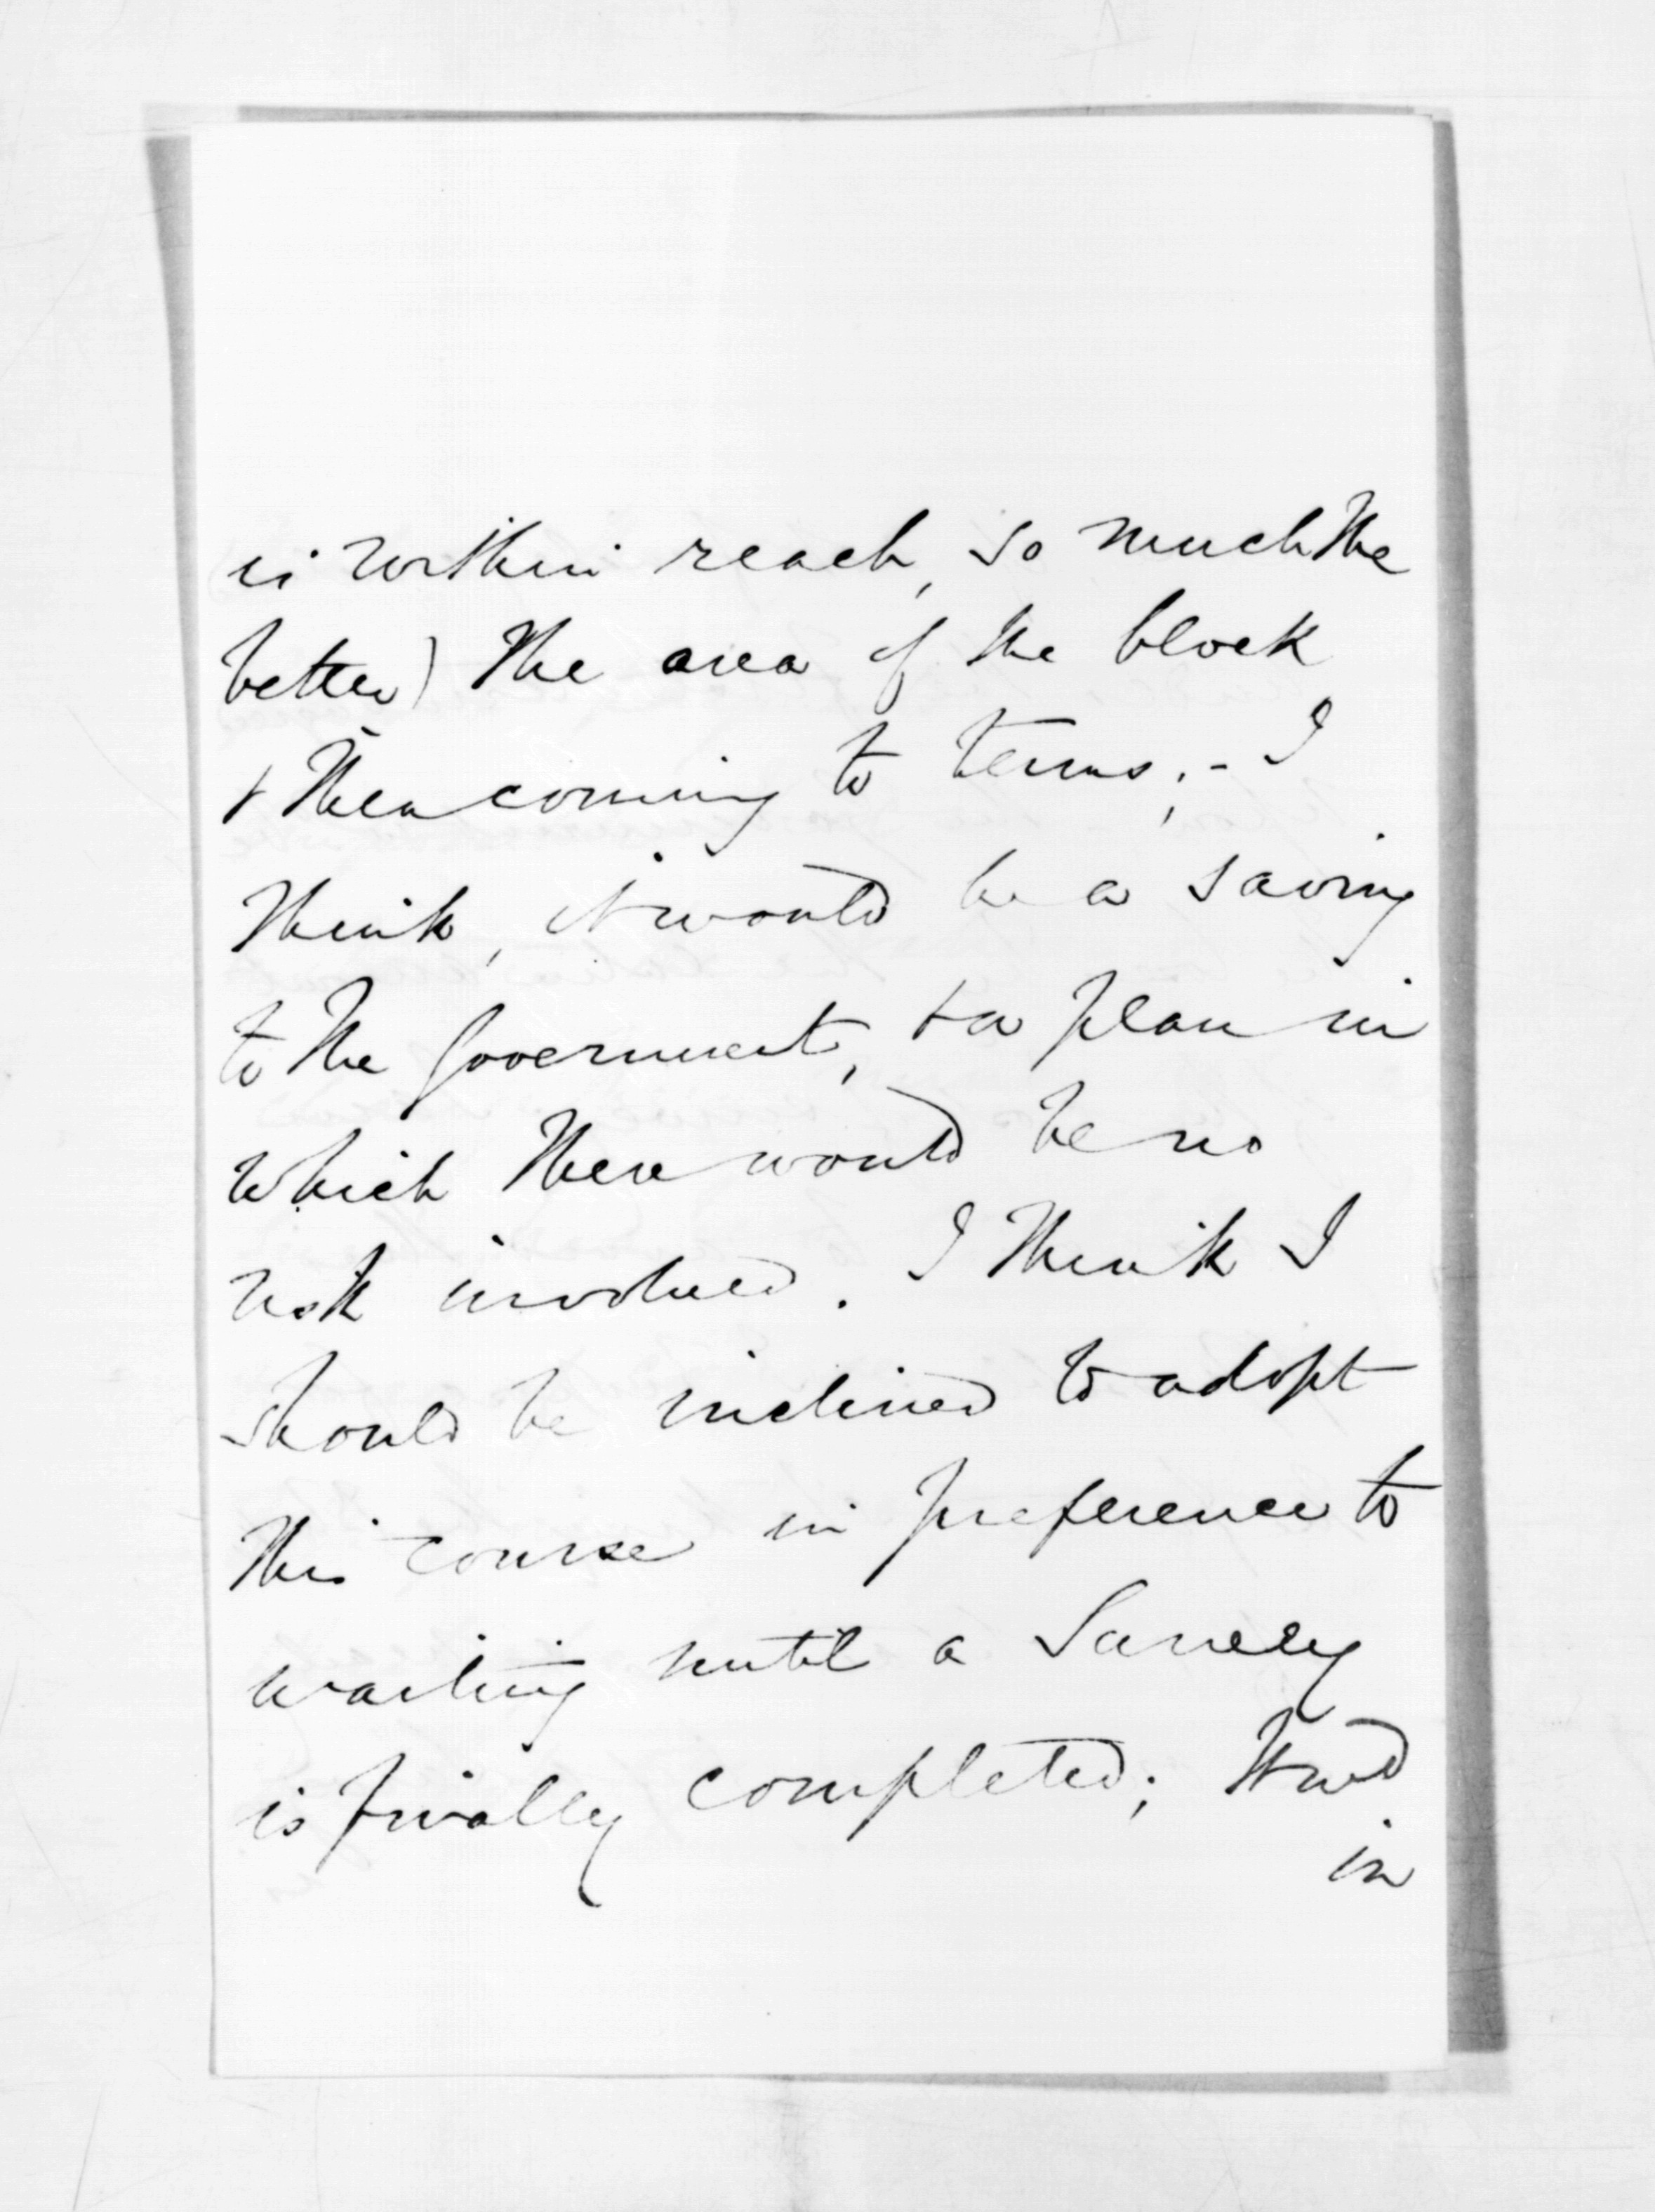 is within reach, so much the
better) the area of the block
& then coming to terms;- I
think, it would be a saving
to the Government, & a plan in
which there would be no
risk involved. I think I
should be inclined to adopt
this course in preference to
waiting until a Survey
is finally completed; & wd
in